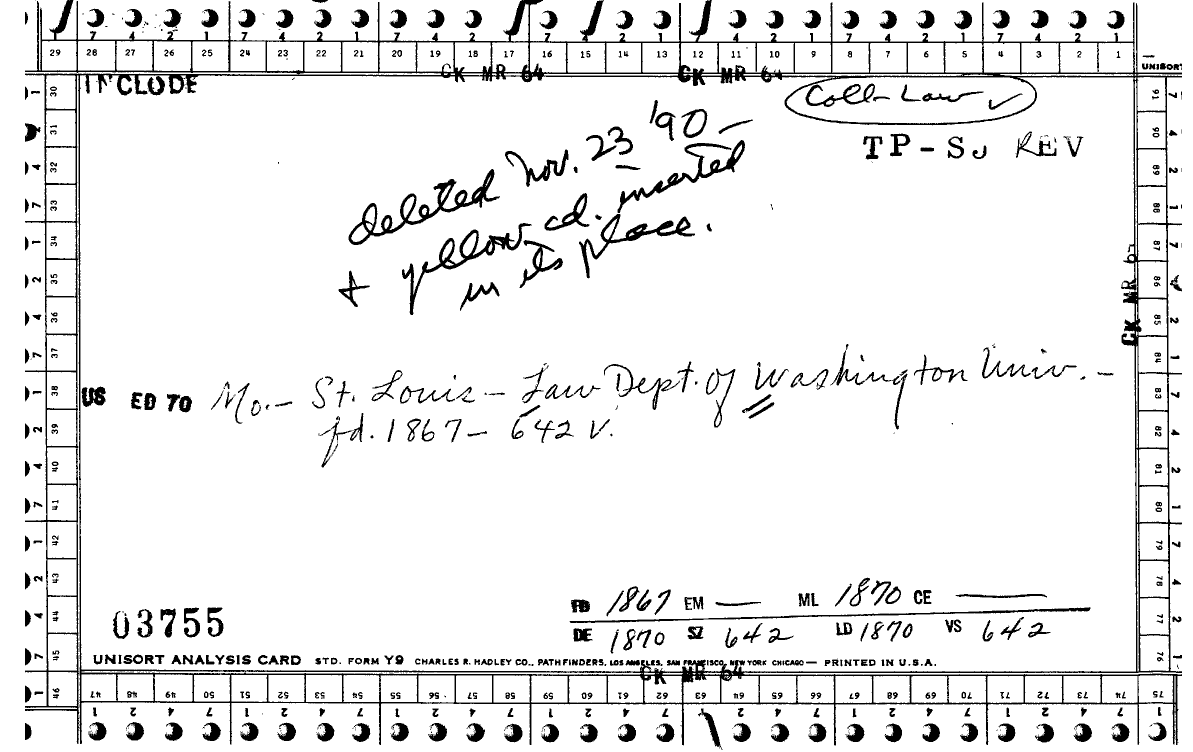 7 4 2 1 7 4 2 1 7 4 2 1 7 4 2 1 7 4 2 1 7 4 2 1 7 4 2 1
29 28 27 26 25 24 23 22 21 20 19 18 17 16 15 14 13 12 11 10 9 8 7 6 5 4 3 2 1
UNISORT
CK MR 64 CK MR 64
INCLUDE
Coll-Law ✓
TP-SJ REV
deleted Nov. 23 '90 —
+ yellow cd. inserted
in its place.
CK MR 64
US ED TO Mo.— St. Louis — Law Dept. of Washington Univ. —
fd. 1867 — 642 v.
FD 1867 EM — ML 1870 CE —
DE 1870 SZ 642 LD 1870 VS 642
03755
UNISORT ANALYSIS CARD STD. FORM Y9 CHARLES R. HADLEY CO., PATHFINDERS, LOS ANGELES, SAN FRANCISCO, NEW YORK CHICAGO — PRINTED IN U.S.A.
CK MR 64
30 31 32 33 34 35 36 37 38 39 40 41 42 43 44 45 46
91 90 89 88 87 86 85 84 83 82 81 80 79 78 77 76
47 48 49 50 51 52 53 54 55 56 57 58 59 60 61 62 63 64 65 66 67 68 69 70 71 72 73 74 75
1 2 4 7 1 2 4 7 1 2 4 7 1 2 4 7 1 2 4 7 1 2 4 7 1 2 4 7 1